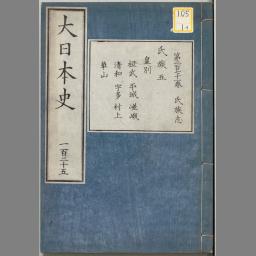 105
14
大日本史
一百三十五
第二百七十一卷 氏族志
氏族五
皇別
桓武 平城 嵯峨
清和 宇多 村上
華山